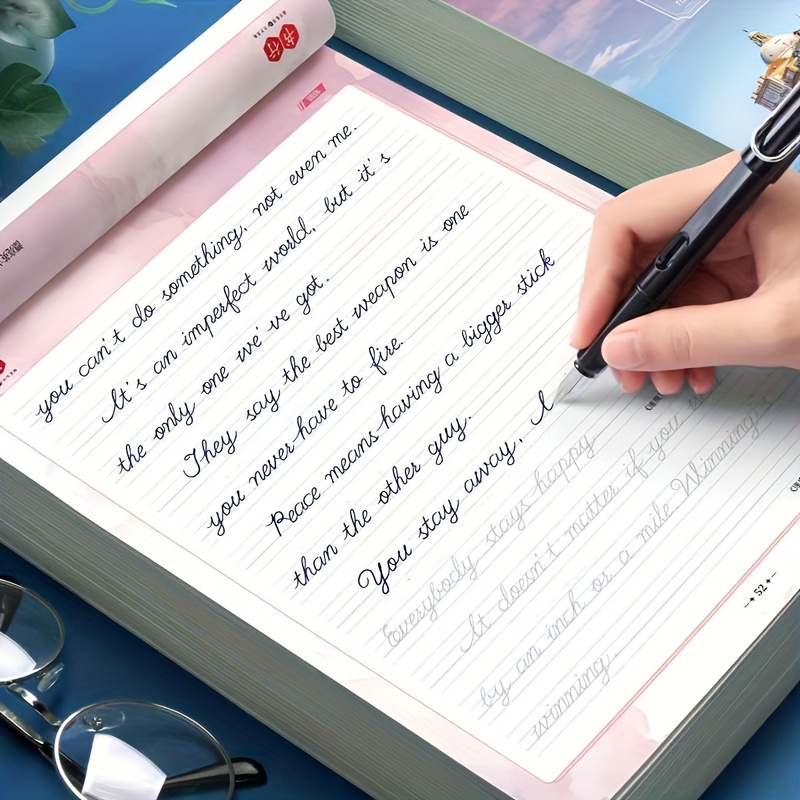 you can't do something, not even me.
It's an imperfect world, but it's
the only one we've got.
They say the best weapon is one
you never have to fire.
Peace means having a bigger stick
than the other guy.
You stay away, I
Everybody stays happy
It doesn't matter if you
by an inch or a mile. Winning's
winning.
52